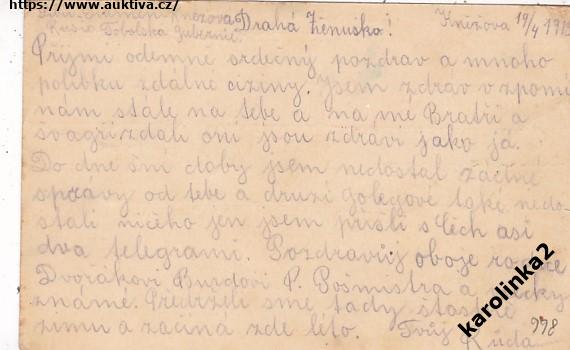 https://www.auktiva.cz/
Knězova Drahá Ženuško! Knězova 19/4 191
Tobolska Gubernie
Přijmi odemne srdečný pozdrav a mnoho
polibku zdálné ciziny. Jsem zdráv vzpomí
nám stále na tebe a na mé Bratři a
švagři zdali oni jsou zdrávi jako já.
Do dne šní doby jsem nedostal žádné
zpravy od tebe a druzí golegové také nedo-
stali ničeho jen jsem přišli s Čech asi
dva telegrami. Pozdravůj oboje rodiče
Dvořákovi Burdovi P. Pošmistra a
známé. Předrželi sme tady šťastně
zimu a začíná zde léto. Tvůj Rúda
998
karolinka2